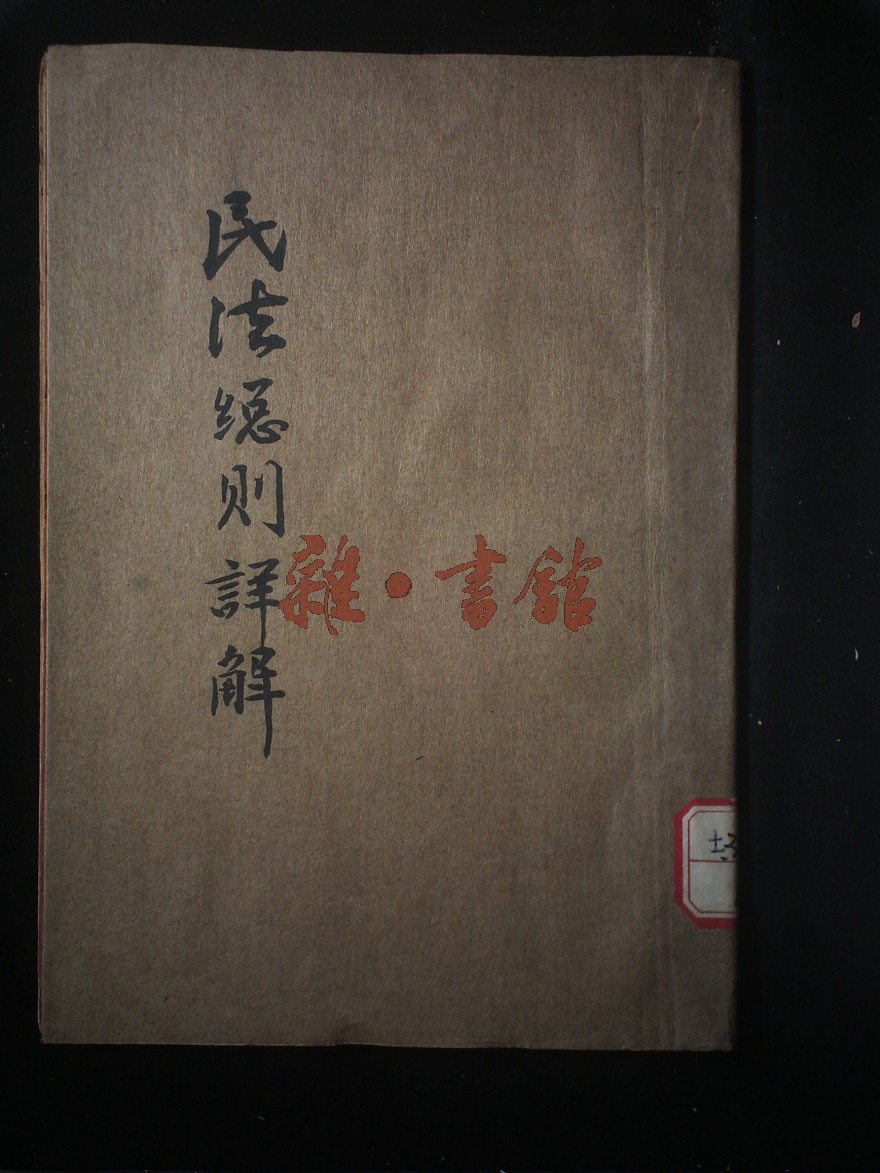 民法總則詳解
雜·書館